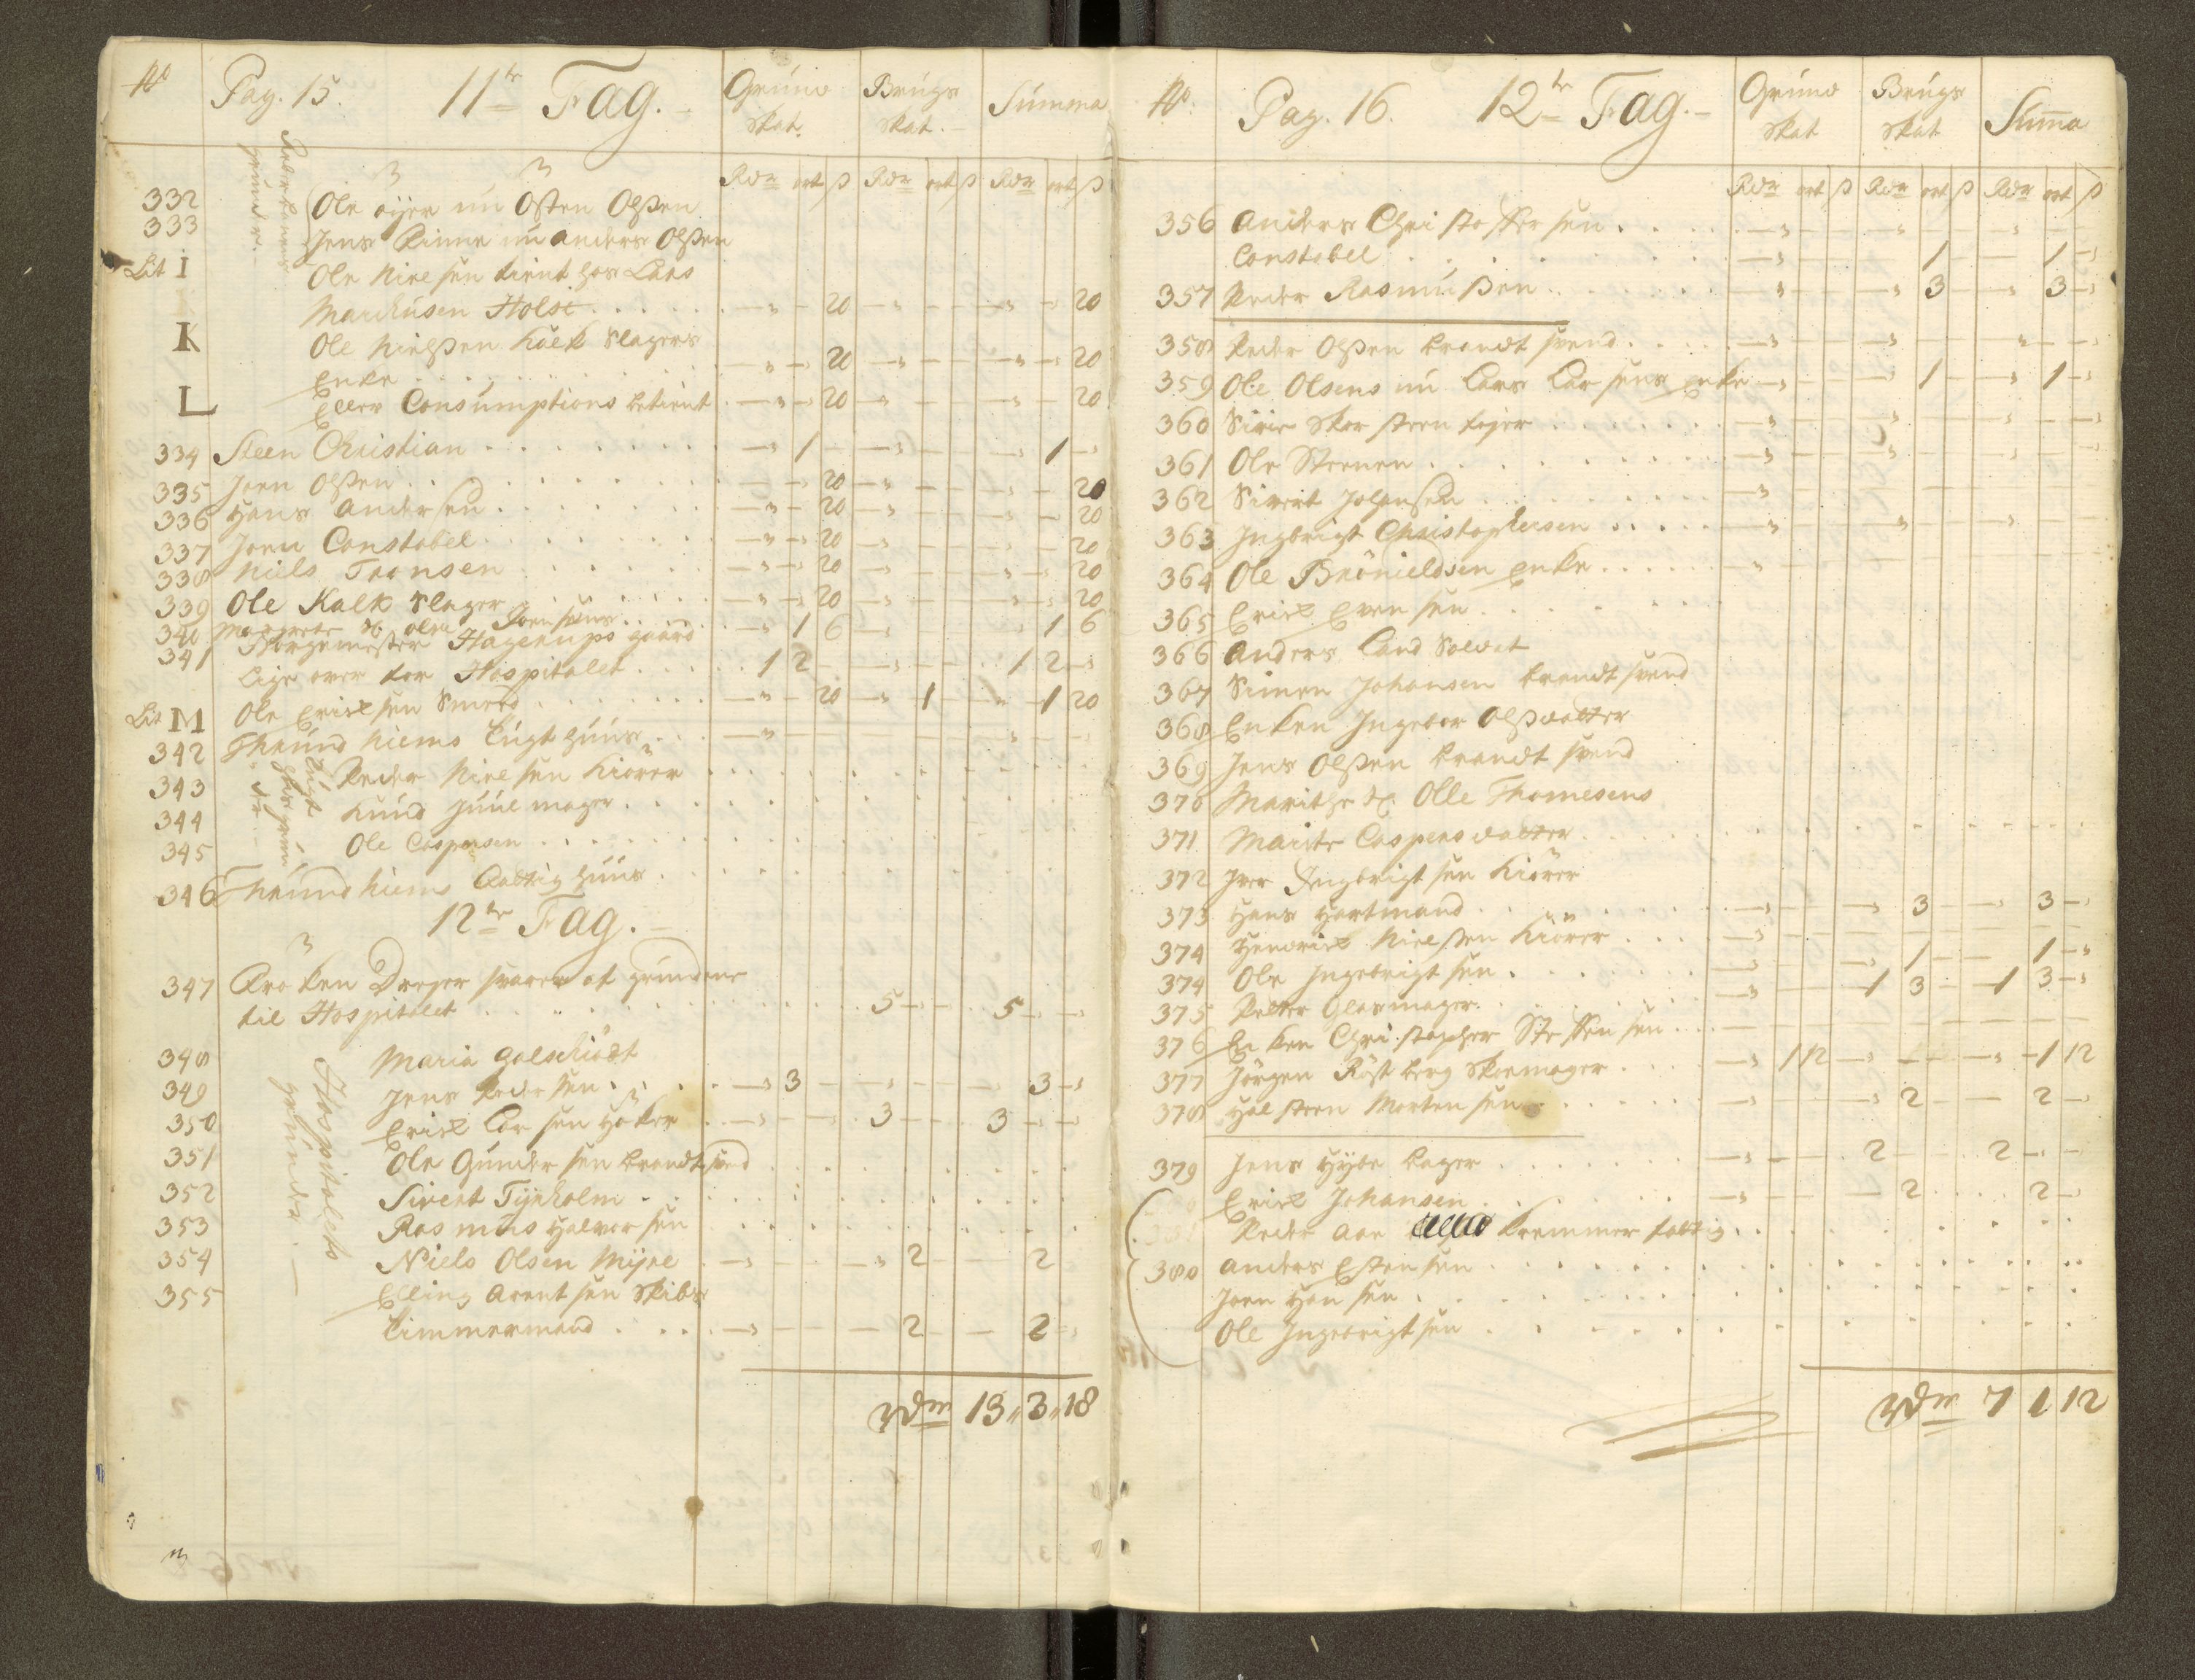 No Pag. 15. 11te Fag. Grund Skat. Brugs Skat. Summa
Rdr ort ß Rdr ort ß Rdr ort ß
332 Ole öyer nu Östen Olßen
333 Jens Rinne nu Anders Olßen
Lit I Ole Nielsen tient hos Lars
Marchusen Holst . . . 20 20
K Ole Nielßen Kalk Slagers
Enke . . . 20 20
L Eller Consumptions betient 20 20
334 Steen Christian . . . 1 1
335 Joen Olßen . . . 20 20
336 Hans Andersen . . . 20 20
337 Joen Constabel . . . 20 20
338 Niels Tronsen . . . 20 20
339 Ole Kalk Slager . . . 20 20
340 Margrete Sl. Olen Joensens . . . 1 6 1 6
341 Borgemester Hagerups gaard
lige over for Hospitalet . . . 1 2 1 2
Lit M Ole Ericksen Smed . . . 20 1 1 20
342 Thrundhiems Tugthuus . . .
343 Peder Nielsen Kiörer . . .
344 Knud Juulmager . . .
345 Ole Caspersen . . .
346 Thrundhiems Fattighuus . . .
12te Fag.
347 Broken Dreyer svarer af grundene
til Hospitalet . . . 5 5
348 Maria Golschiödt
349 Jens Pedersen . . . 3 3
350 Erick Larsen Höker . . . 3 3
351 Ole Gundersen brandtsvend
352 Sivert Tyrholm . . .
353 Rasmus Halvorsen . . .
354 Niels Olsen Myre . . . 2 2
355 Elling Arentsen Skibs
Timmermand . . . 2 2
Hospitalets grunder.
Rdr 13 „ 3 „ 18
No. Pag. 16. 12te Fag. Grund Skat Brugs Skat Summa
Rdr ort ß Rdr ort ß Rdr ort ß
356 Anders Christoffersen . . .
Constabel . . . 1 1
357 Peder Rasmußen . . . 3 3
358 Peder Olßen brandtsvend . . .
359 Ole Olsens nu Lars Larsens Enke 1 1
360 Sivert Skorsteen fejer . . .
361 Ole Steenen . . .
362 Sivert Johansen . . .
363 Ingbrigt Christophersen . . .
364 Ole Brönieldsen Enke . . .
365 Erick Evensen . . .
366 Anders Land Soldat
367 Simen Johansen brandtsvend
368 Enken Ingebor Olßdatter
369 Jens Olßen brandtsvend
370 Marithe Sl. Olle Thomesens
371 Marite Caspersdatter . . .
372 Iver Ingbrigtsen Kiörer
373 Hans Hartmand . . . 3 3
374 Hendrick Nielßen Kiörer . . .
374 Ole Ingebrigtsen . . . 1 1
375 Petter Glasmager . . . 1 3 1 3
376 Enken Christopher Steffensen . . .
377 Jörgen Röstberg Skomager . . . 1 12 1 12
378 Halsteen Mortensen . . . 2 2
379 Jens Hyde bager . . . 2 2
Erick Johansen . . . 2 2
Peder Aae Kremmer fattig . . .
380 Anders Estensen . . .
Joen Hansen . . .
Ole Ingebrigtsen . . .
Rdr 7 1 12